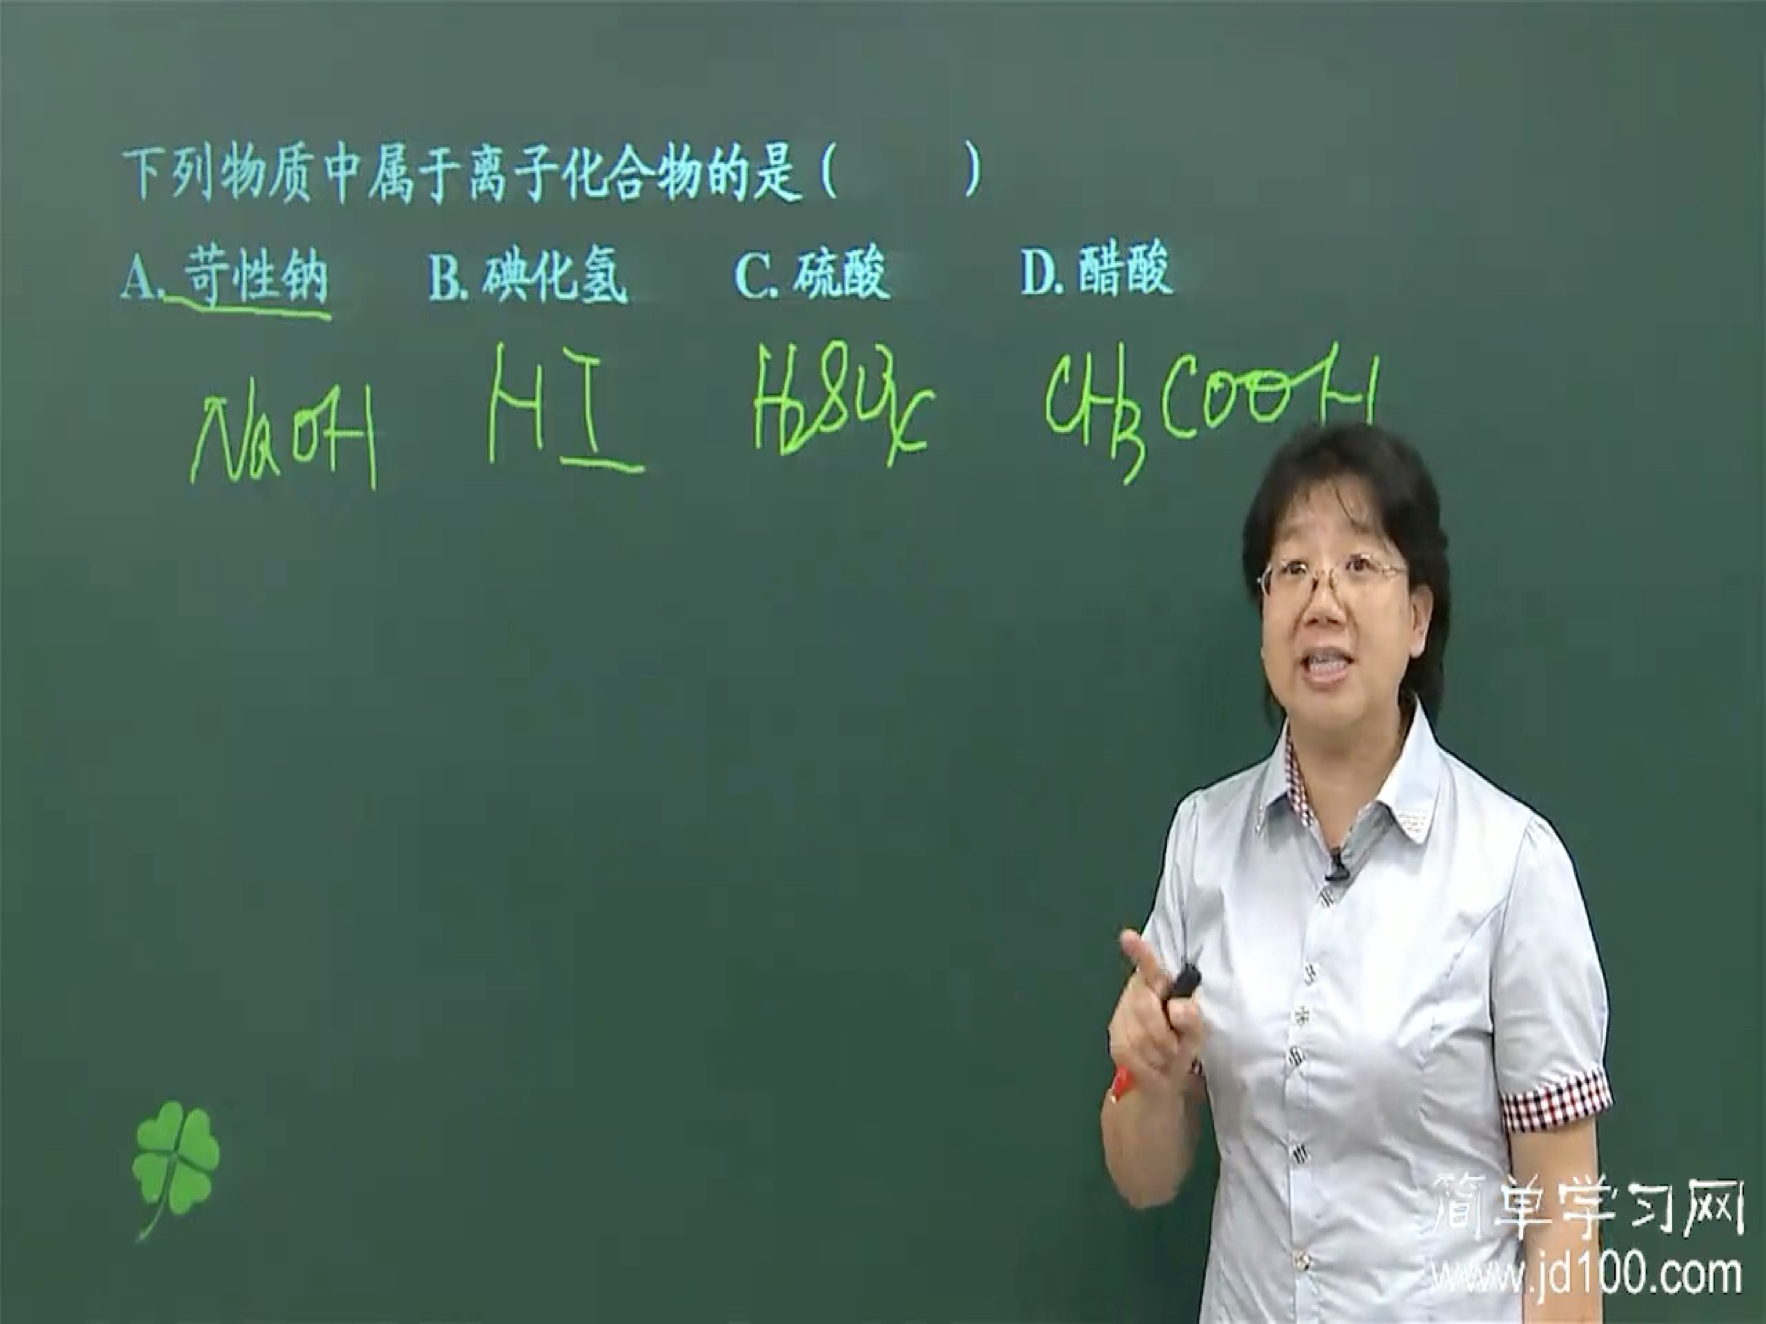 下列物质中属于离子化合物的是（　　）
A. 苛性钠　B. 碘化氢　C. 硫酸　D. 醋酸
NaOH　HI　H2SO4　CH3COOH
简单学习网
www.jd100.com